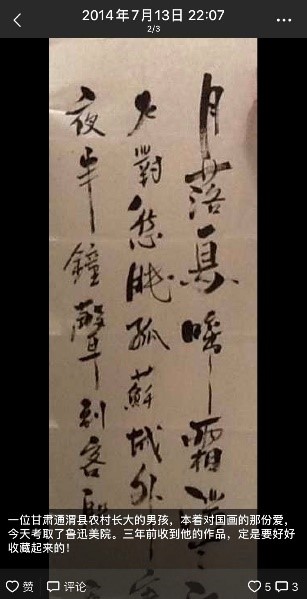 2014年7月13日 22:07
2/3
月落烏啼霜滿
火對愁眠孤蘇城外寒
夜半鐘聲到客船
一位甘肃通渭县农村长大的男孩，本着对国画的那份爱，
今天考取了鲁迅美院。三年前收到他的作品，定是要好好
收藏起来的！
赞 评论 5 3